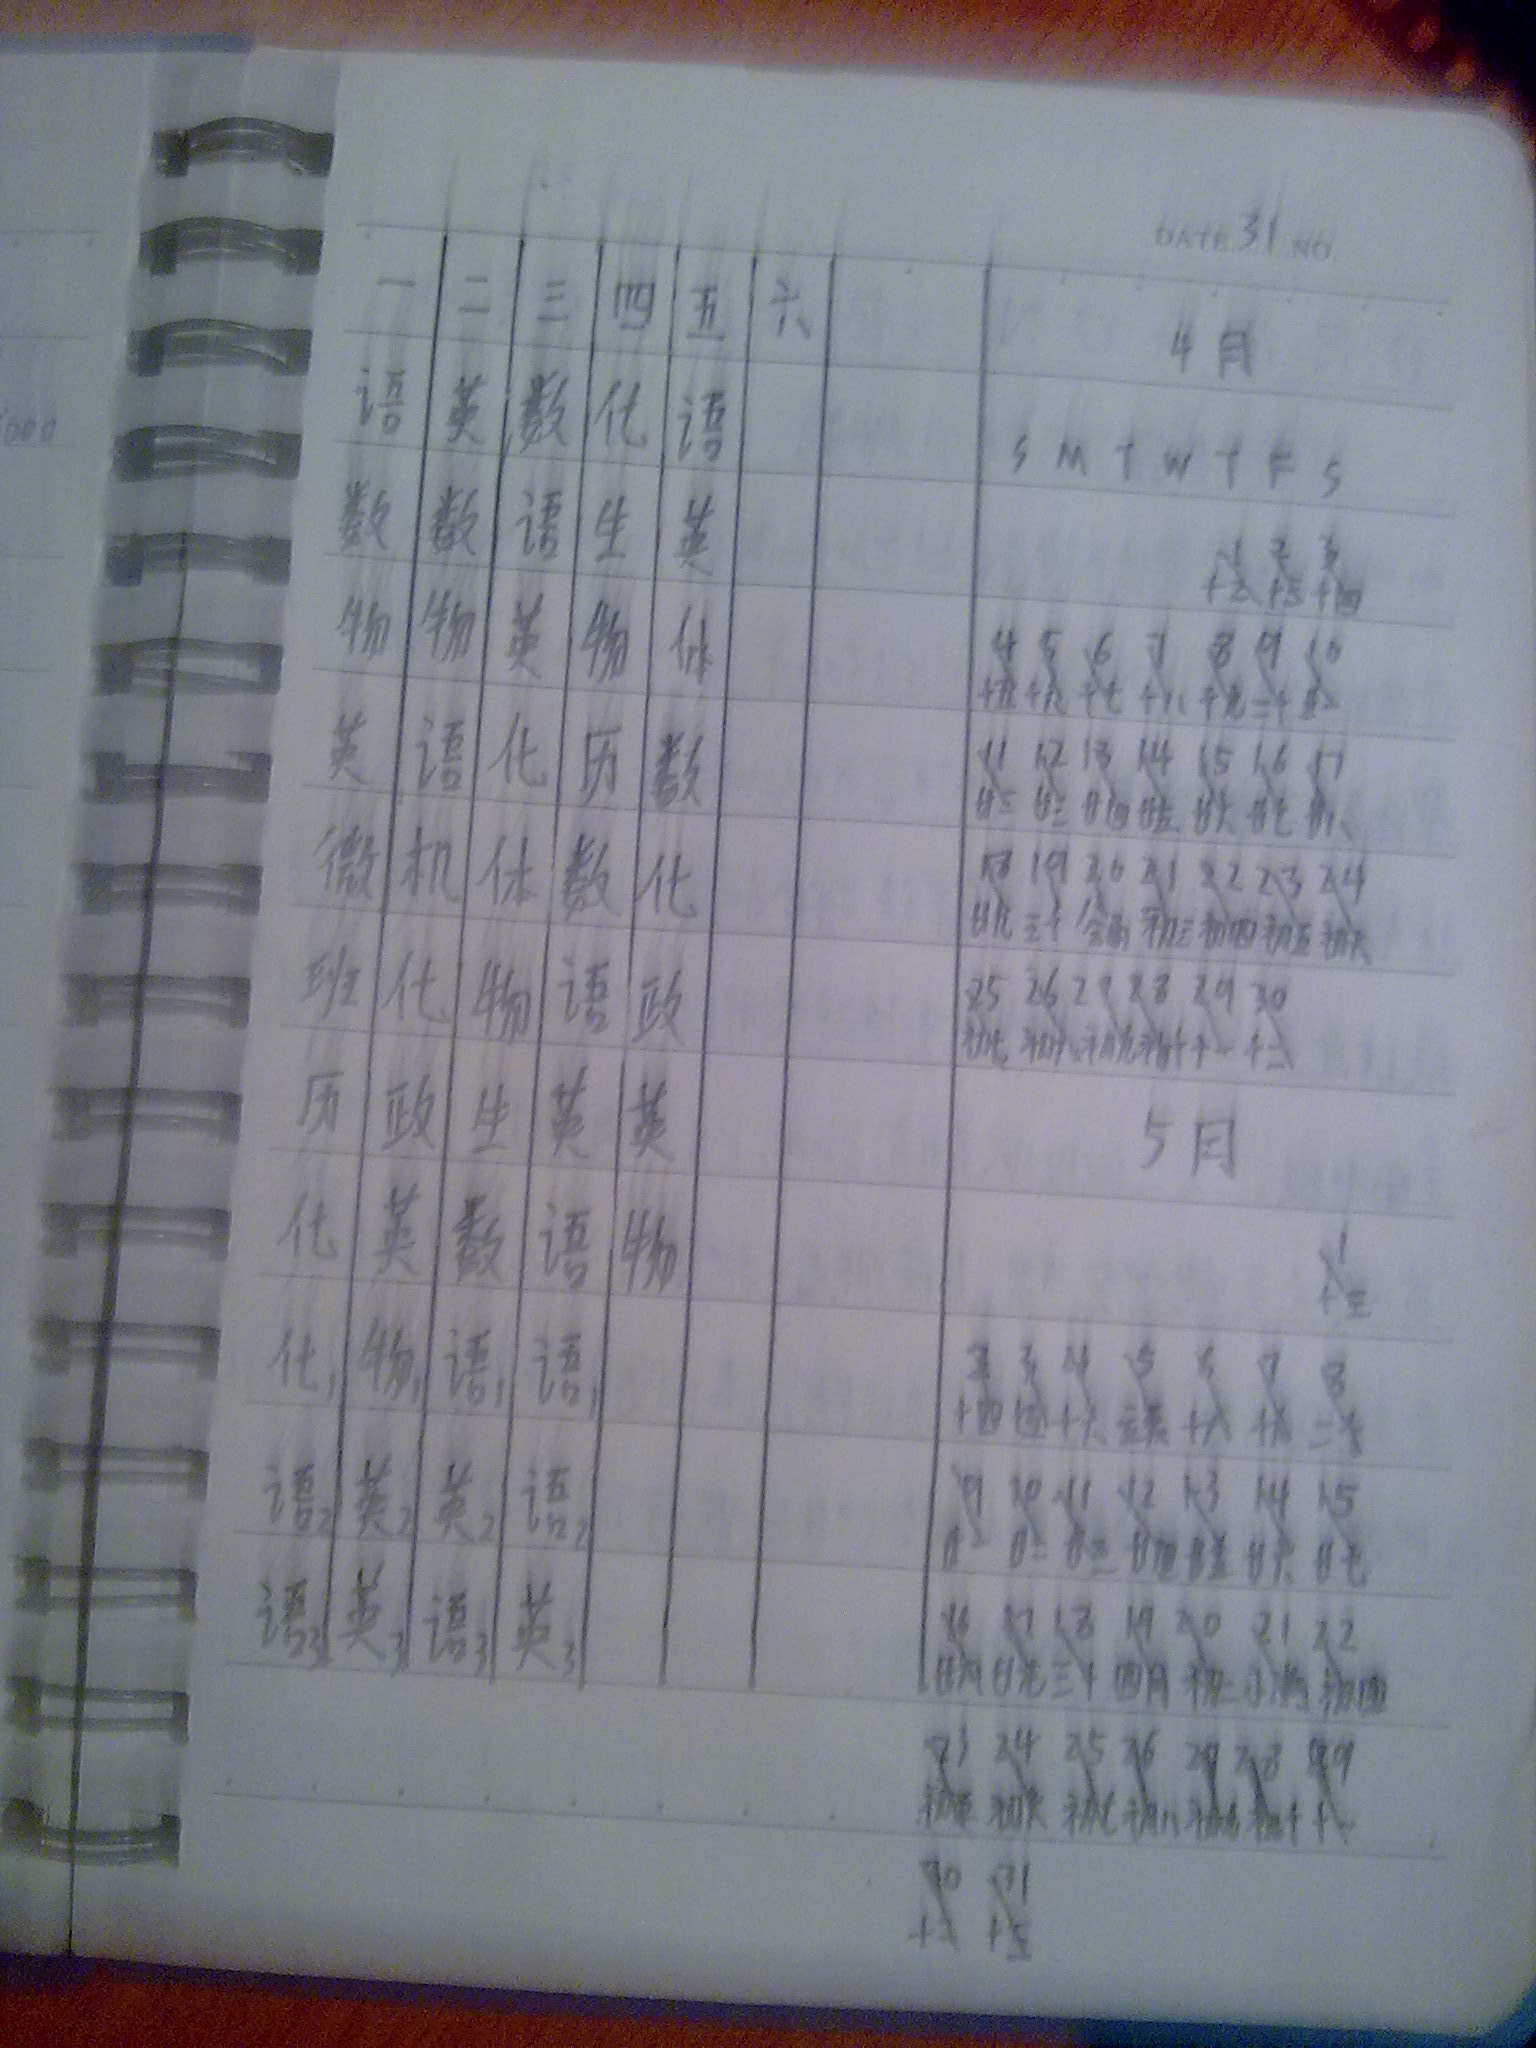 DATE 31 NO
一 二 三 四 五 六
语 英 数 化 语
数 数 语 生 英
物 物 英 物 体
英 语 化 历 数
微 机 体 数 化
班 化 物 语 政
历 政 生 英 英
化 英 数 语 物
化1 物1 语1 语1
语2 英2 英2 语2
语3 英3 语3 英3
4月
S M T W T F S
1 2 3
十四
4 5 6 7 8 9 10
十五 十六 十七 十八 十九 二十
11 12 13 14 15 16 17
廿二 廿三 廿四 廿五 廿六 廿七 廿八
18 19 20 21 22 23 24
廿九 三十 谷雨 初三 初四 初五 初六
25 26 27 28 29 30
初七 初八 初九 初十 十一 十二
5月
1
十三
2 3 4 5 6 7 8
十四 十六 立夏
9 10 11 12 13 14 15
廿一 廿二 廿三 廿四 廿五 廿六 廿七
16 17 18 19 20 21 22
廿八 廿九 三十 四月 初二 小满 初四
23 24 25 26 27 28 29
初五 初六 初七 初八 初九 初十 十一
30 31